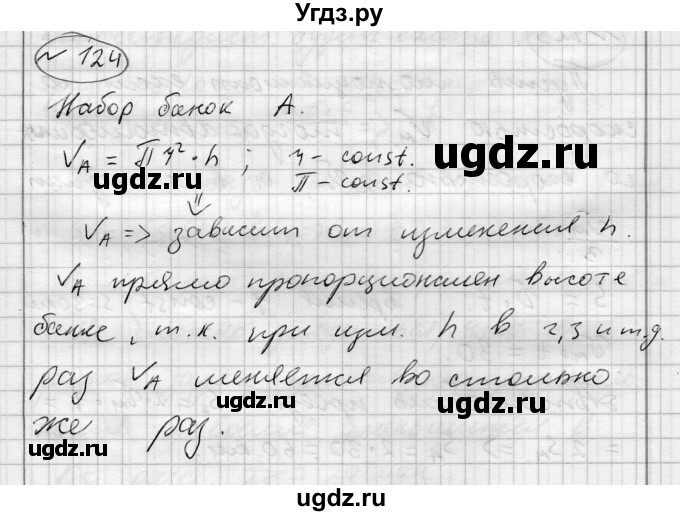 Угдз.ру
№ 124
Набор банок А.
V_A = πr² · h ; r - const.
π - const.
ugdz.ru ugdz.ru
V_A => зависит от изменения h.
V_A прямо пропорционален высоте
банке, т.к. при изм. h в 2,3 и т.д.
раз V_A меняется во столько
ugdz.ru ugdz.ru
же раз.
ugdz.ru
ugdz.ru